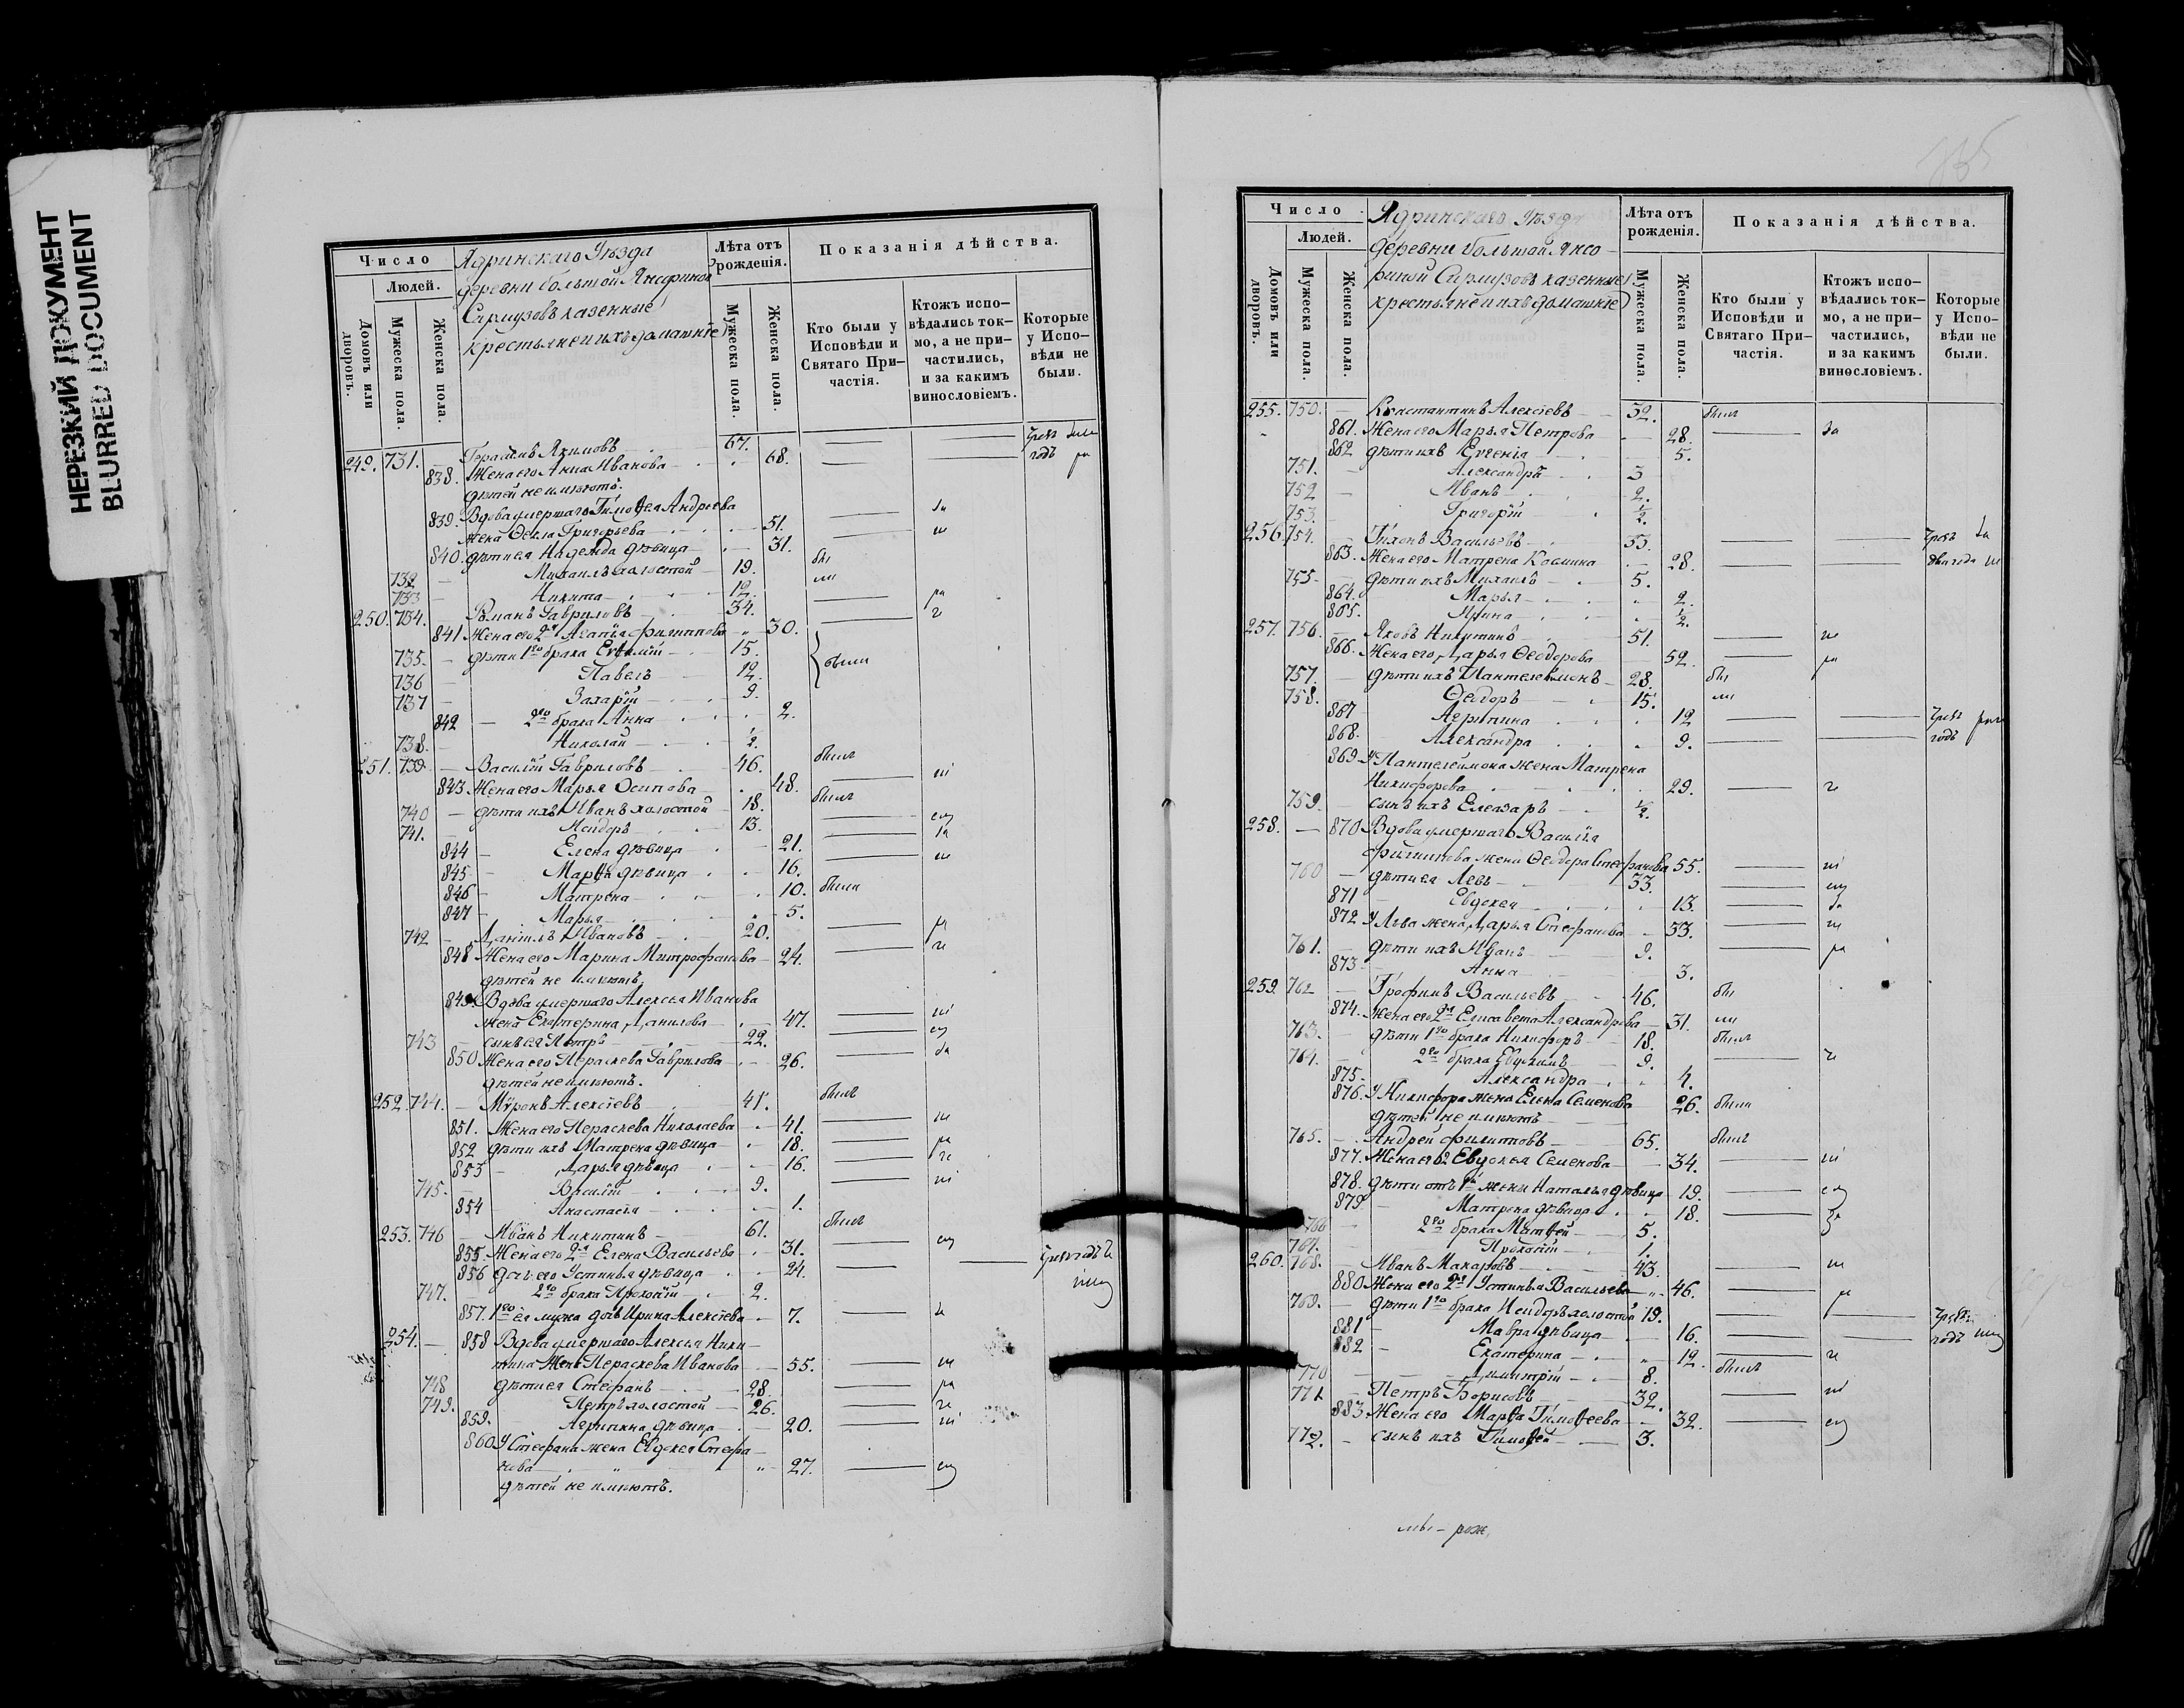 НЕРЕЗКИЙ ДОКУМЕНТ
BLURRED DOCUMENT
Число
Людей.
Домовъ или дворовъ.
Мужеска пола.
Женска пола.
Ядринскаго Уѣзда
деревни большой
казенные
крестьяне и ихъ домашніе
Лѣта отъ рожденія.
Мужеска пола.
Женска пола.
Показанія дѣйства.
Кто были у Исповѣди и Святаго Причастія.
Ктожъ исповѣдались токмо, а не причастились, и за какимъ винословіемъ.
Которые у Исповѣди не были.
249. 731. — Герасимъ Якимовъ 67.
838. Жена его Анна Иванова 68.
дѣтей не имѣютъ.
839. Вдова умершаго Тимоѳея Андреева
жена Ѳекла Григорьева 51.
840. дѣти ея Надежда дѣвица 31.
732 — Михаилъ холостой 19.
733 — Никита 12.
250. 734. — Романъ Гавриловъ 34.
841 Жена его 2я Агапія Филиппова 30.
735 — дѣти 1го брака Евѳимій 15.
736 — Павелъ 12.
737 — Захарій 9.
842 — 2го брака Анна 2.
738. — Николай ½.
251. 739 — Василій Гавриловъ 46. былъ
843. Жена его Марья Осипова 48.
740 — дѣти ихъ Иванъ холостой 18. былъ
741. — Исидоръ 13.
844 — Елена дѣвица 21.
845 — Марѳа дѣвица 16.
846 — Матрена 10. были
847 — Марья 5.
742 — Даніилъ Ивановъ 20.
848 Жена его Марина Митрофанова 24.
дѣтей не имѣютъ.
849. Вдова умершаго Алексея Иванова
жена Екатерина Данилова 47.
743 — сынъ ея Петръ 22.
850 Жена его Параскева Гаврилова 26.
дѣтей не имѣютъ.
252. 744. — Миронъ Алексіевъ 41. былъ
851. Жена его Параскева Николаева 41.
852 дѣти ихъ Матрена дѣвица 18.
853 — Дарья дѣвица 16.
745. — Василій 9.
854 — Анастасія 1.
253. 746 — Иванъ Никитинъ 61. былъ
855 Жена его 2я Елена Васильева 31.
856 дочь его Устинья дѣвица 24.
747. — 2го брака Прокопій 2.
857. 1го ея мужа дочь Ирина Алексіева 7.
254. — 858 Вдова умершаго Алексея Ники-
тина жена Параскева Иванова 55.
748 дѣти ея Стефанъ 28.
749. Петръ холостой 26.
859. — Агрипина дѣвица 20.
860 У Стефана жена Евдокея Стефа-
нова 27.
дѣтей не имѣютъ.
Число
Людей.
Домовъ или дворовъ.
Мужеска пола.
Женска пола.
Ядринскаго Уѣзда
деревни большой
казенные
крестьяне и ихъ домашніе
Лѣта отъ рожденія.
Мужеска пола.
Женска пола.
Показанія дѣйства.
Кто были у Исповѣди и Святаго Причастія.
Ктожъ исповѣдались токмо, а не причастились, и за какимъ винословіемъ.
Которые у Исповѣди не были.
255. 750. — Константинъ Алексіевъ 32. былъ
861. Жена его Марья Петрова 28.
862 дѣти ихъ Евгенія 5.
751. — Александръ 3
752 — Иванъ 2.
753. — Григорій ½.
256. 754. — Тихонъ Васильевъ 33.
863. Жена его Матрена Косьмина 28.
755 — дѣти ихъ Михаилъ 5.
864. Марья 2.
865. Ирина ½.
257. 756. — Яковъ Никитинъ 51.
866. Жена его Дарья Ѳеодорова 52.
757. — дѣти ихъ Пантелеимонъ 28.
758. Ѳеодоръ 15.
867 Агрипина 12
868. Александра 9.
869 У Пантелеимона жена Матрена
Никифорова 29.
759. — сынъ ихъ Елеазаръ ½.
258. — 870 Вдова умершаго Василія
Филиппова жена Ѳеодора Стефанова 55.
760 — дѣти ея Левъ 33.
871 Евдокея 13.
872 У Льва жена Дарья Стефанова 33.
761. — дѣти ихъ Иванъ 9.
873 Анна 3.
259. 762 — Трофимъ Васильевъ 46.
874. Жена его 2я Елисавета Александрова 31.
763. — дѣти 1го брака Никифоръ 18. былъ
764. 2го брака Евдокимъ 9.
875. — Александра 4.
876. У Никифора жена Елена Семенова 26. были
дѣтей не имѣютъ
765. — Андрей Филиповъ 65. былъ
877. Жена его 2 Евдокея Семенова 34.
878. дѣти отъ 1й жены Наталья дѣвица 19.
879 Матрена дѣвица 18.
766 — 2го брака Матѳей 5.
767. Прокопій 1.
260. 768. Иванъ Макаровъ 43.
880 Жена его 2я Устинья Васильева 46.
769. — дѣти 1го брака Исидоръ холостой 19.
881 — Мавра дѣвица 16.
882 — Екатерина 12.
770 — Димитрій 8. былъ
771 — Петръ Борисовъ 32.
883 Жена его Марѳа Тимоѳеева 32.
772. — сынъ ихъ Тимоѳей 3.